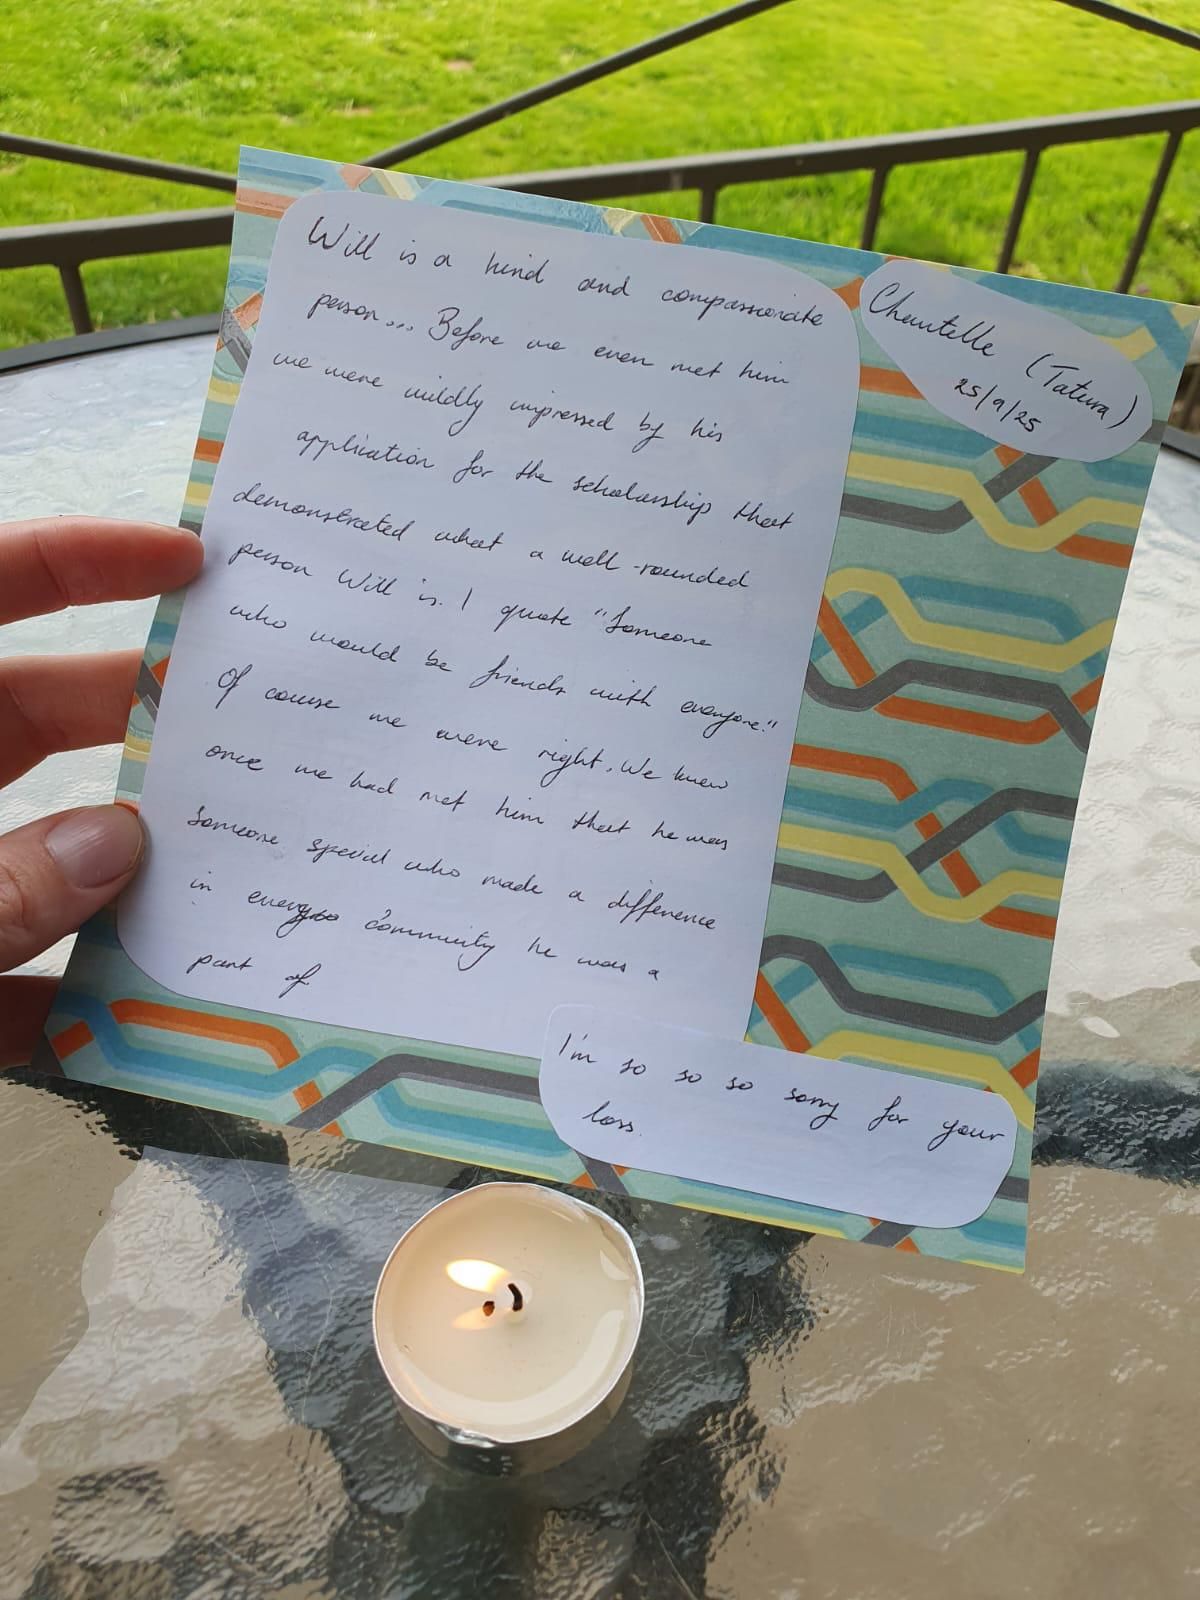 Will is a kind and compassionate
person... Before we even met him
we were wildly impressed by his
application for the scholarship that
demonstrated what a well-rounded
person Will is. I quote "Someone
who would be friends with everyone."
Of course we were right. We knew
once we had met him that he was
someone special who made a difference
in every community he was a
part of.
Chantelle (Tatura)
25/9/25
I'm so so so sorry for your
loss.